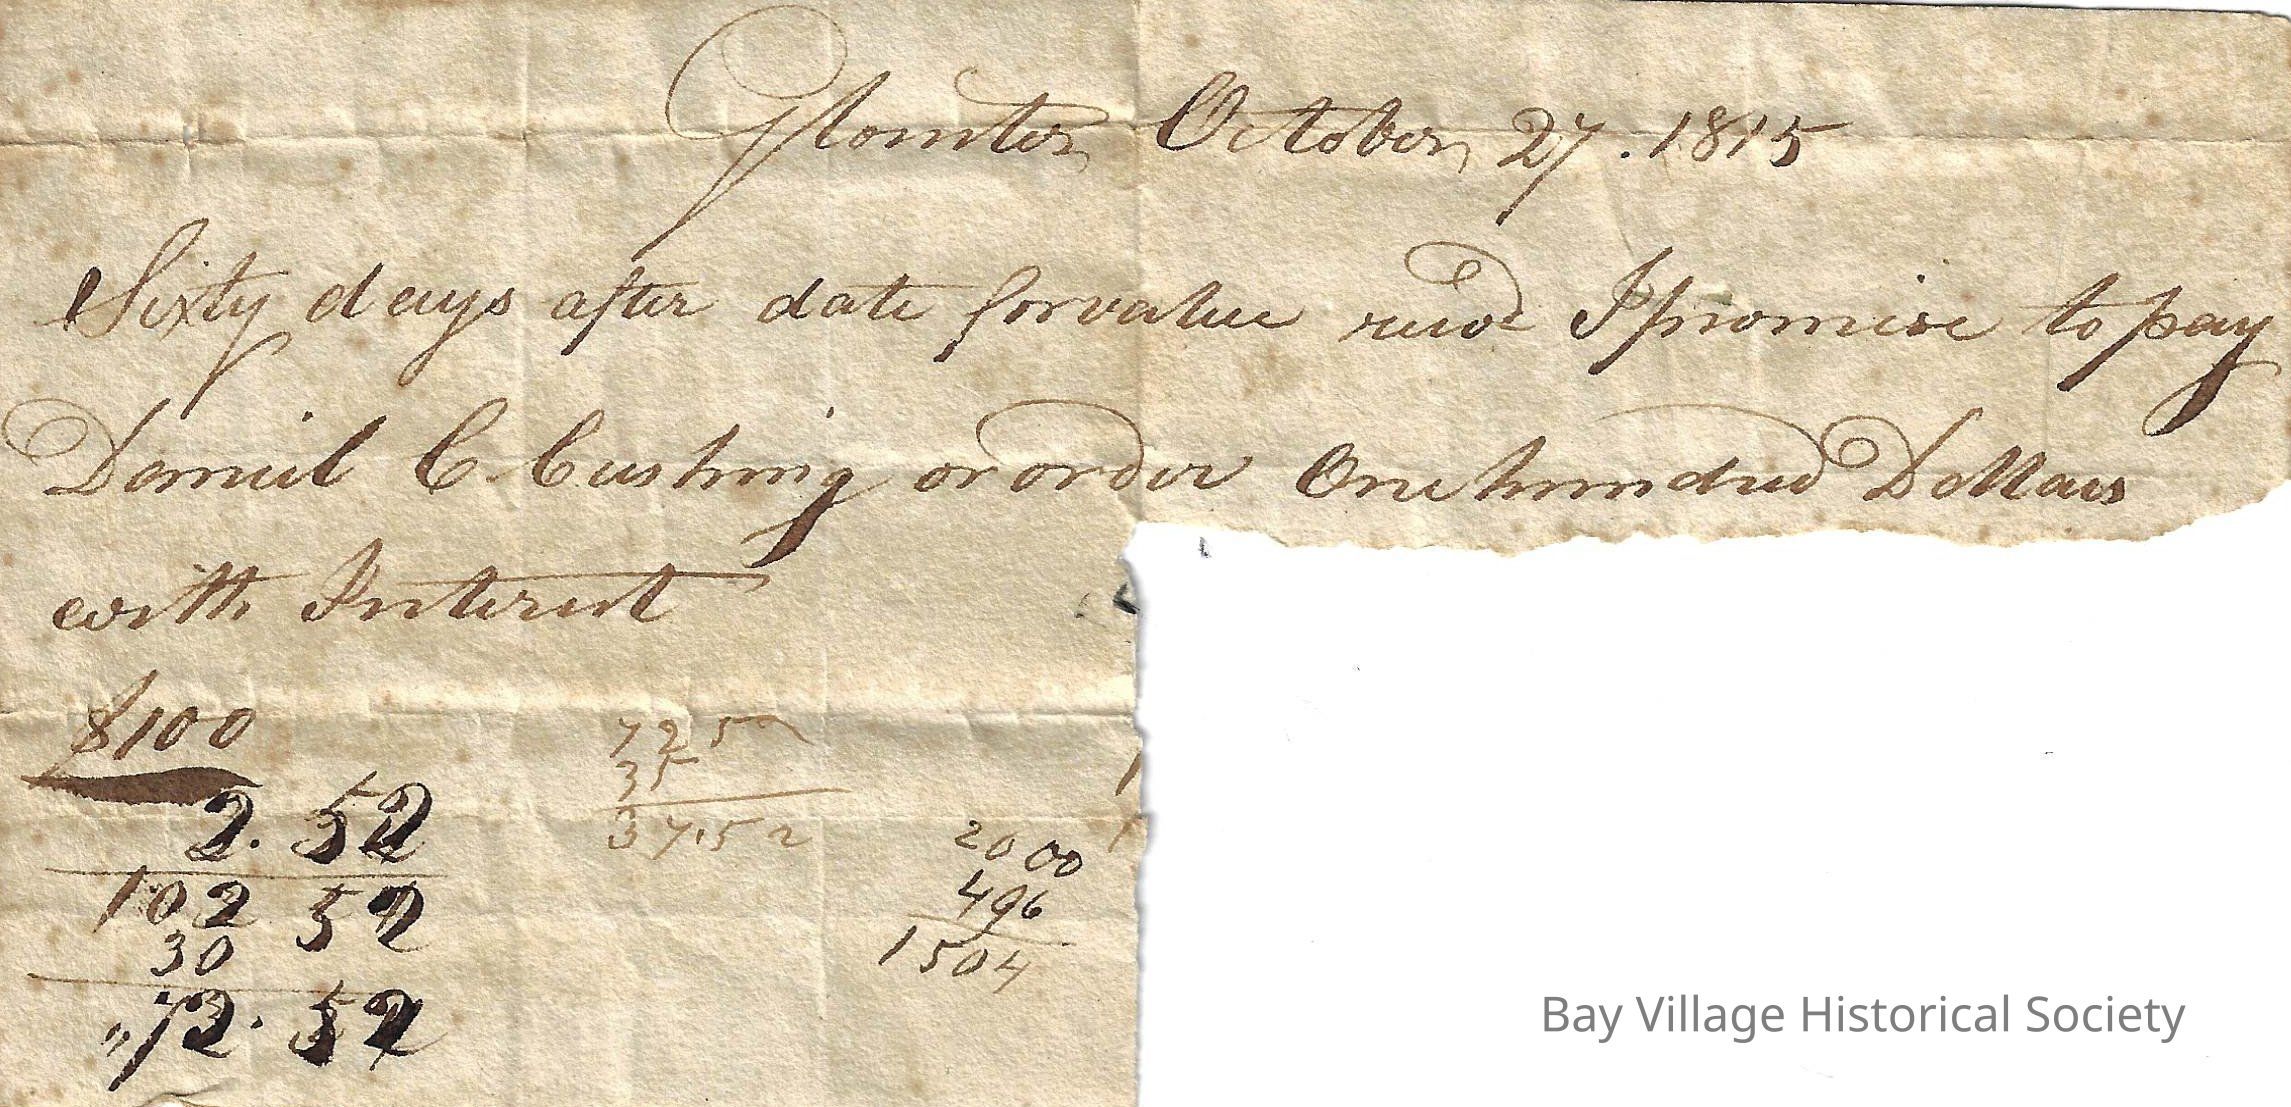 October 27. 1815
Sixty days after date for value recvd I promise to pay
Daniel C. Cushing or order One hundred Dollars
with Interest
$100
2. 52
102 52
30
"72. 52
72 52
35
37.52
20 00
496
1504
Bay Village Historical Society